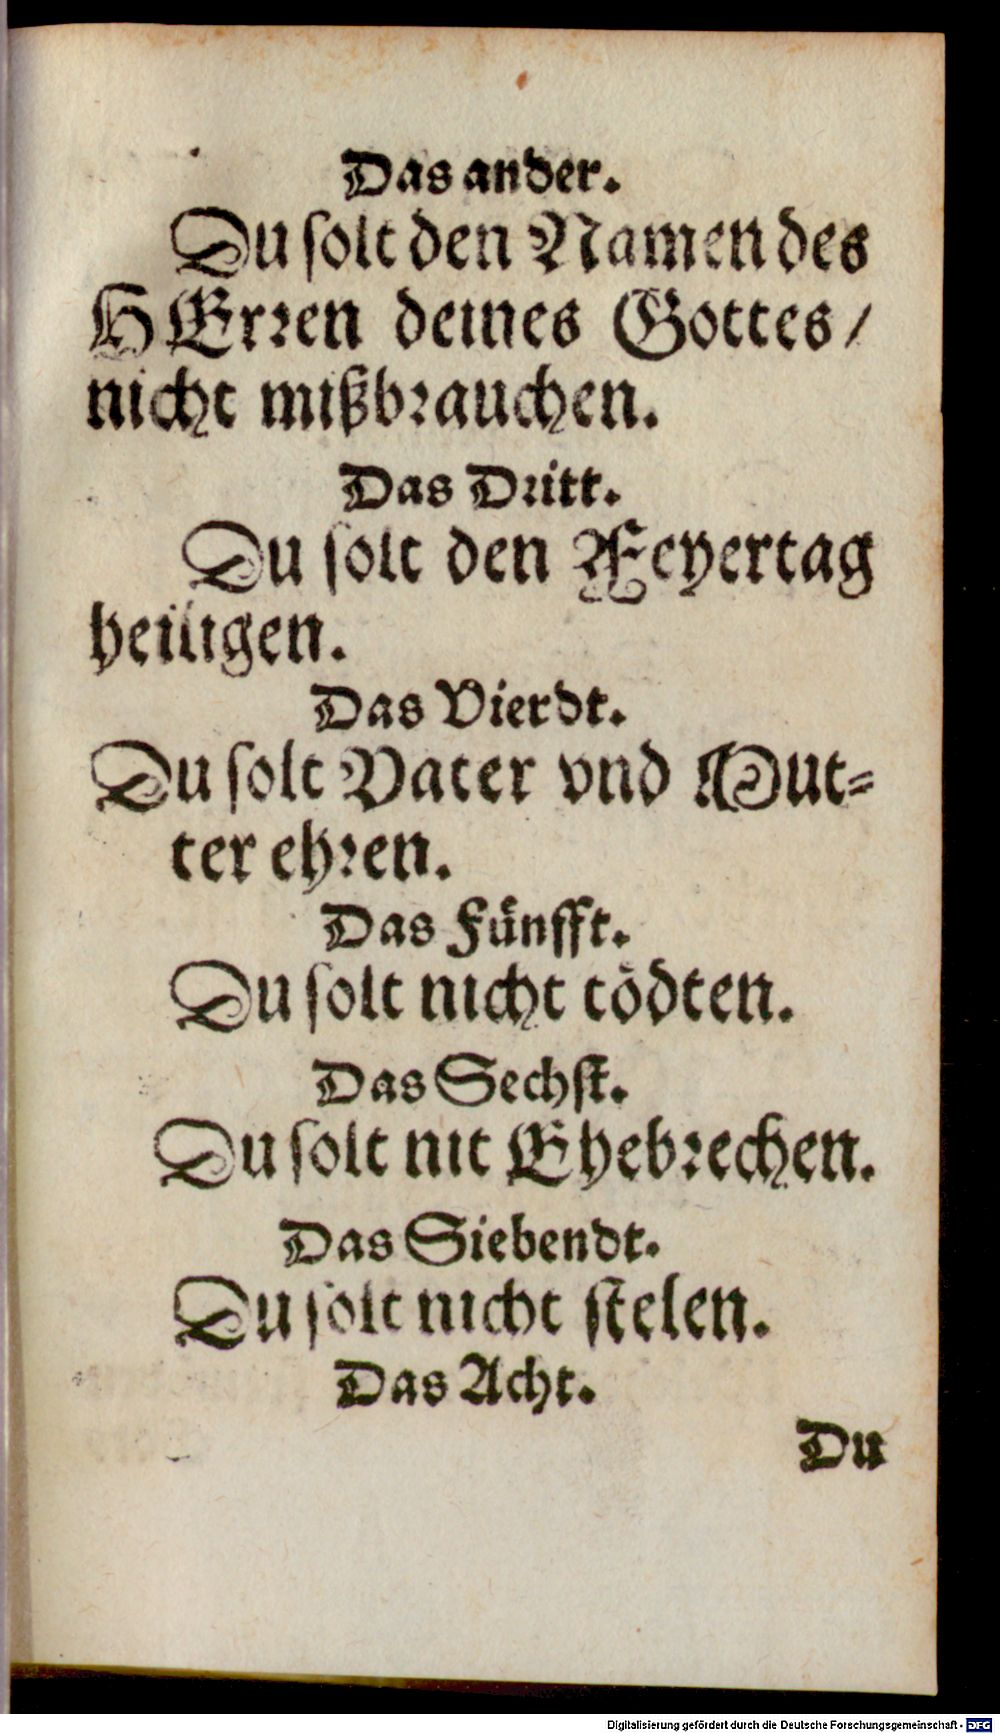 Das ander.
Du solt den Namen des
HErren deines Gottes /
nicht mißbrauchen.
Das Dritt.
Du solt den Feyertag
heiligen.
Das Vierdt.
Du solt Vater vnd Mut-
ter ehren.
Das Fünfft.
Du solt nicht tödten.
Das Sechst.
Du solt nit Ehebrechen.
Das Siebendt.
Du solt nicht stelen.
Das Acht.
Du
Digitalisierung gefördert durch die Deutsche Forschungsgemeinschaft - DFG